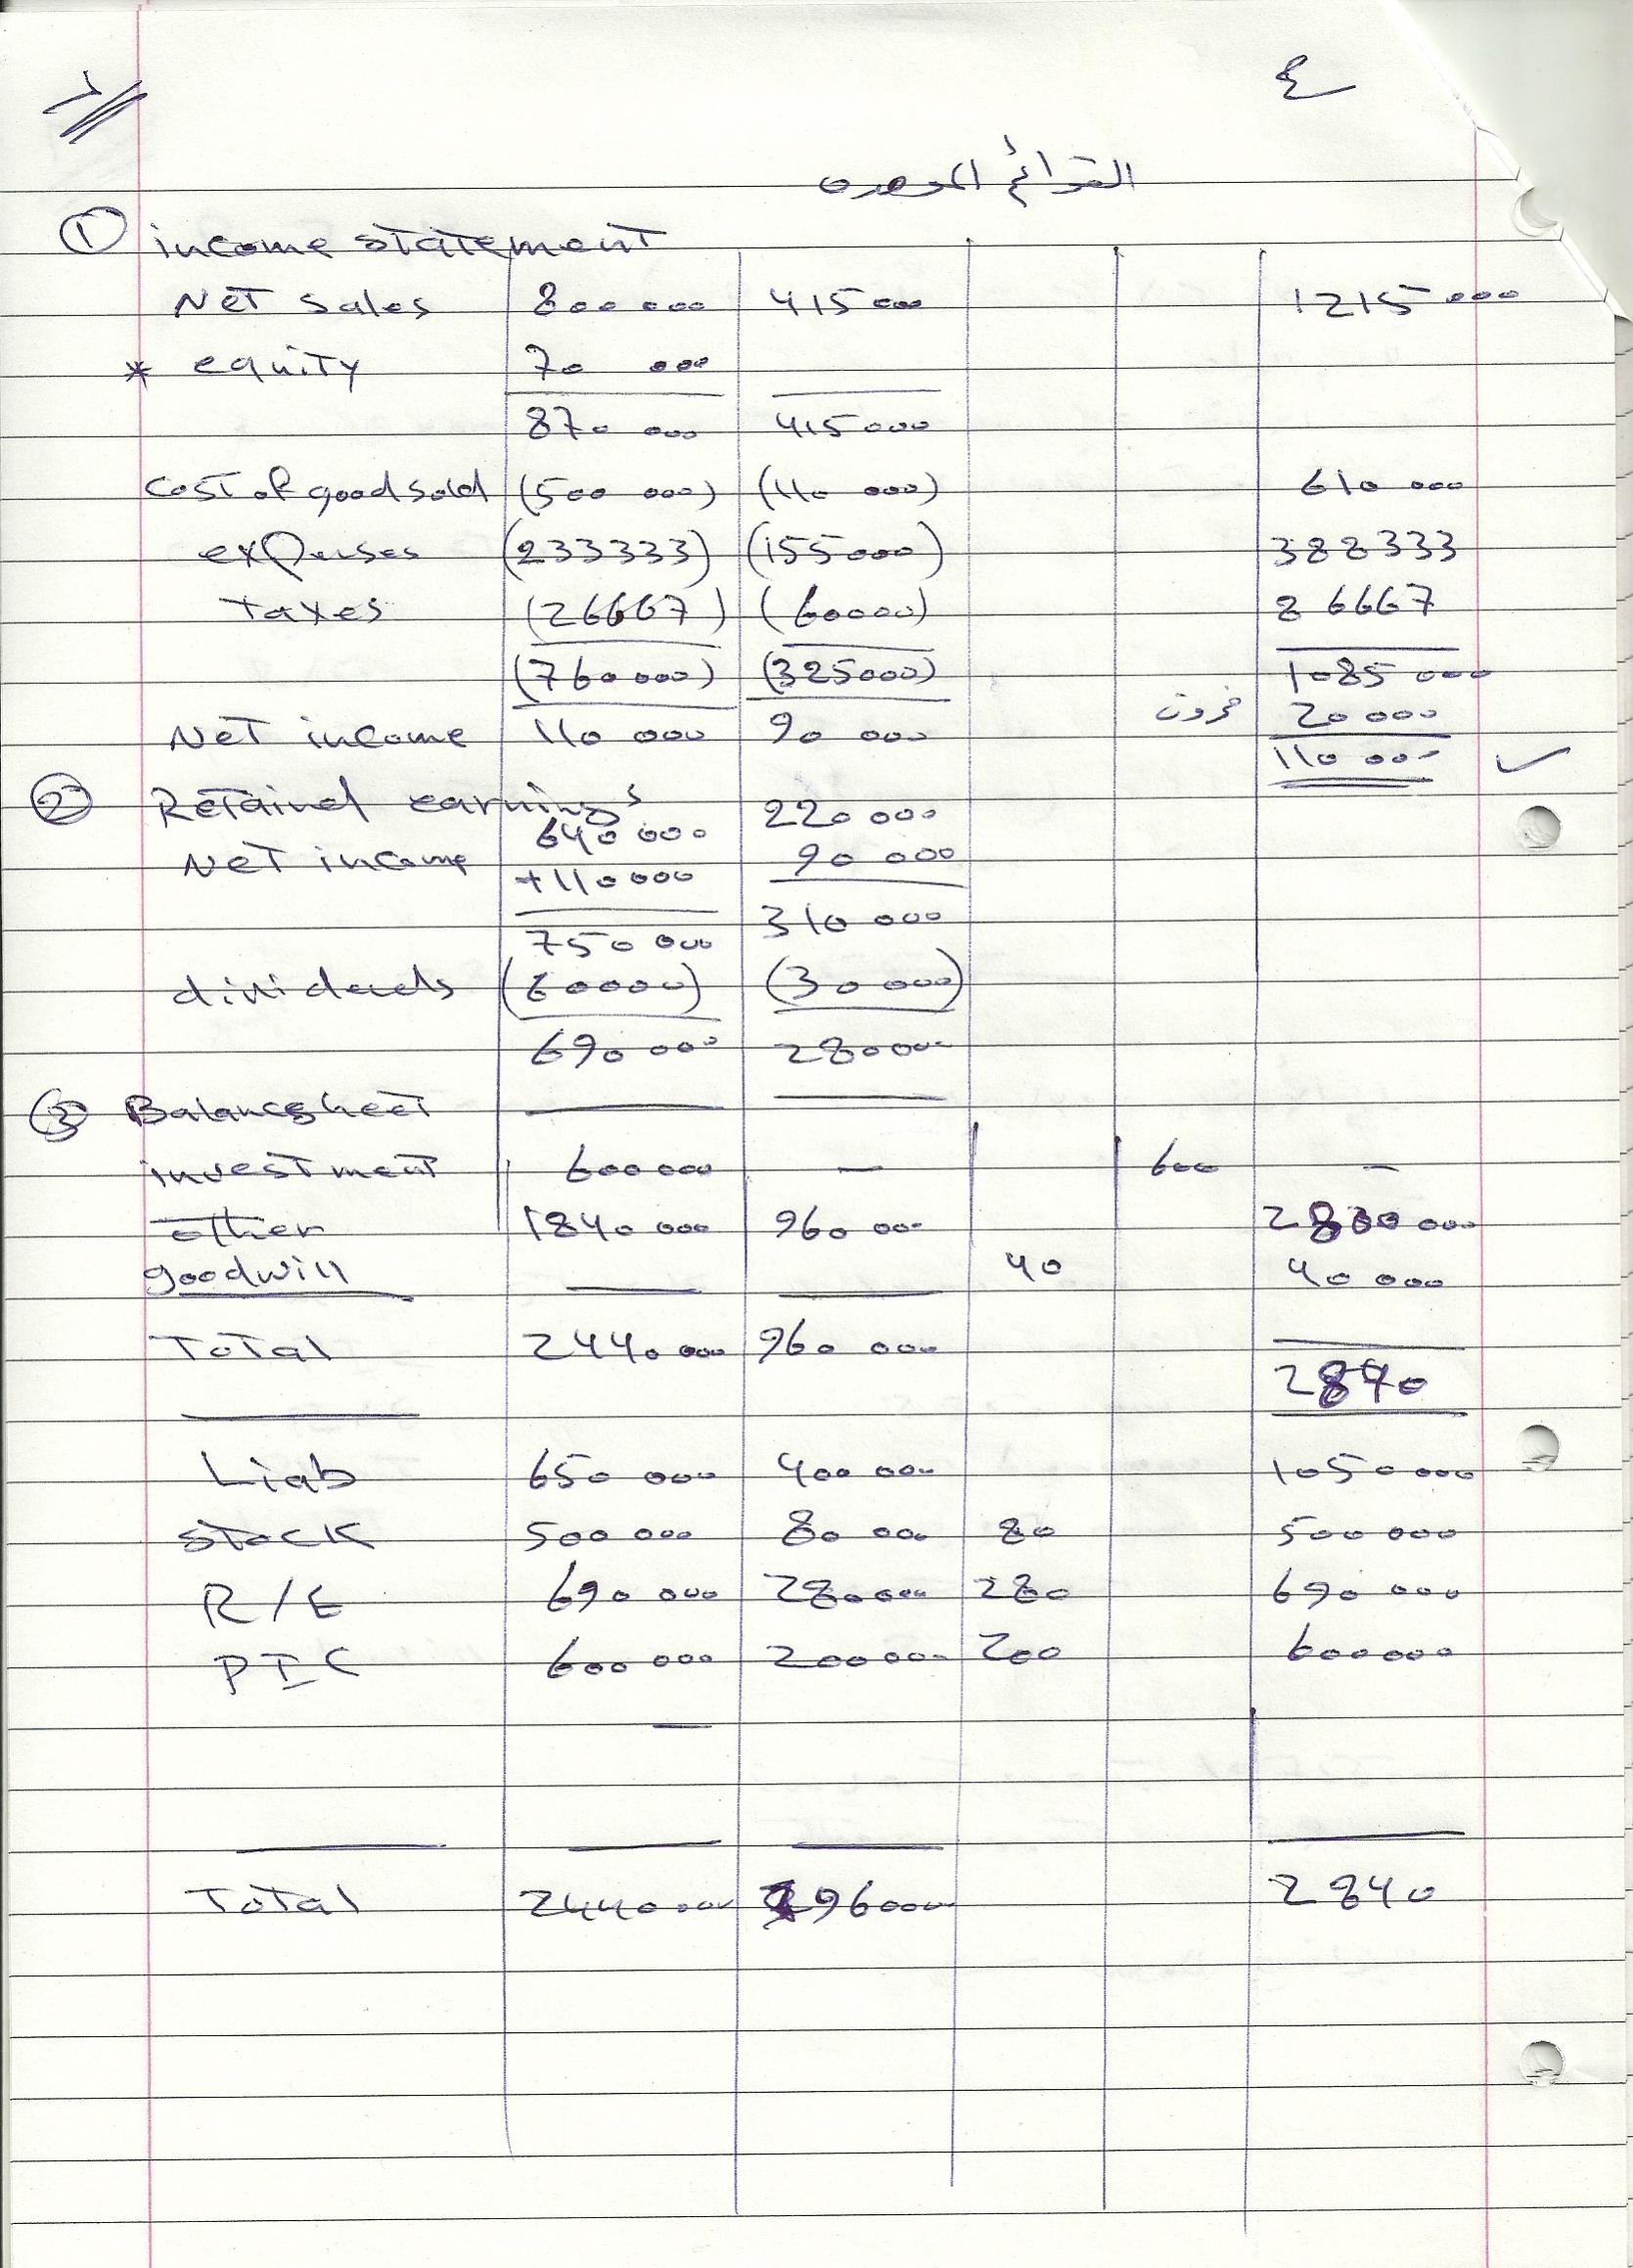 ٤
القوائم الموحدة
① income statement
Net sales 800 000 415 000 1215 000
* equity 70 000
870 000 415 000
cost of good sold (500 000) (110 000) 610 000
expenses (233333) (155000) 388333
taxes (26667) (60000) 86667
(760000) (325000) 1085 000
20000
Net income 110 000 90 000 110 000 ✓
② Retained earnings 640 000 220 000
Net income +110000 90 000
750 000 310 000
dividends (60000) (30 000)
690 000 280000
③ Balance sheet
investment 600000 — 600 —
other 1840 000 960 000 000
goodwill 40 40 000
Total 2440 000 960 000
Liab 650 000 400 000 1050000
stock 500 000 80 000 80 500 000
R/E 690 000 280000 280 690 000
PIC 600 000 200 000 200 600000
Total 2440000 960000 2840